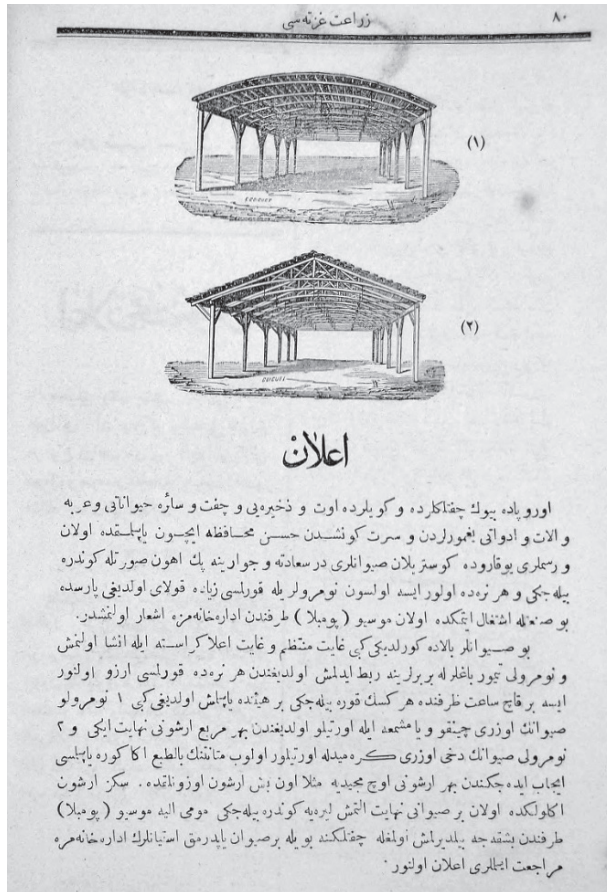 ٨٠
زراعت غزته‌سی
(١)
(٢)
اعلان
اوروپاده بیوك چفتلكلرده و كویلرده اوت و ذخیره‌یی و چفت و سائره حیواناتی وعربه
و الات و ادواتی یغموردن و سرت كونشدن حسن محافظه ایچون یاپلمقده اولان
و رسملری یوقاروده كوستریلان صیوانلری در سعادته و جوارینه پك اهون صورتله كوندره
بیله‌جكی و هر نره‌ده اولور ایسه اولسون نومرولر یله قورلسی زیاده قولای اولدیغی پارسده
بو صنعتله اشتغال ایتمكده اولان موسیو ( پومبلا ) طرفندن اداره‌خانه‌مزه اشعار اولنمشدر.
بو صیوانلر بالاده كورلدیكی كبی غایت منتظم و غایت اعلا كراسته ایله انشا اولنمش
و نومرولی تیمور باغلر له بربرلرینه ربط ایدلمش اولدیغندن هر نره‌ده قورلسی ارزو اولنور
ایسه بر قاچ ساعت ظرفنده هر كسك قوره بیله‌جكی بر هیئتده یاپلمش اولدیغی كبی ١ نومرولو
صیوانك اوزری چینقو و یا مشمعه ایله اورتیلو اولدیغندن بهر مربع ارشونی نهایت ایكی و ٢
نومرولی صیوانك دخی اوزری كره‌میدله اورتیلور اولوب متانتنك بالطبع اكا كوره یاپلسی
ایجاب ایده‌جكندن بهر ارشونی اوچ مجیدیه مثلا اون بش ارشون اوزونلقده . سكز ارشون
اكلولكده اولان بر صیوانی نهایت التمش لیرایه كوندره بیله‌جكی مومی الیه موسیو ( پومبلا )
طرفندن بشقه‌جه بیلدیرلمش اولمغله چفتلكنه بویله برصیوان یاپدرمق استیانلرك اداره‌خانه‌مزه
مراجعت ایتملری اعلان اولنور .